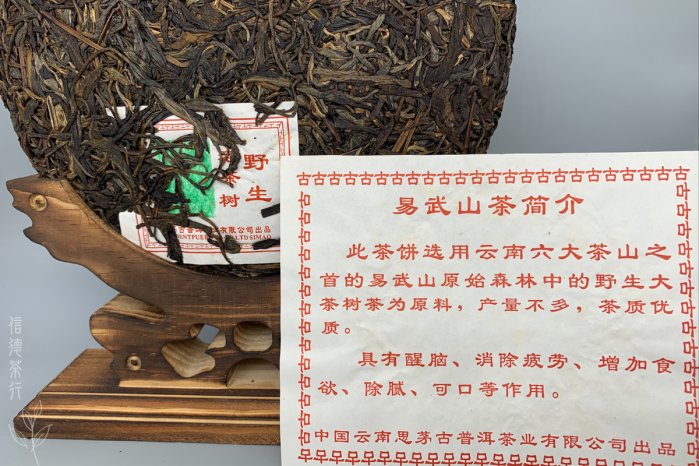 易武山茶简介
此茶饼选用云南六大茶山之
首的易武山原始森林中的野生大
茶树茶为原料，产量不多，茶质优
质。
具有醒脑、消除疲劳、增加食
欲、除腻、可口等作用。
中国云南思茅古普洱茶业有限公司出品
野生
茶树
有限公司出品
LTD SIMAO
信德茶行